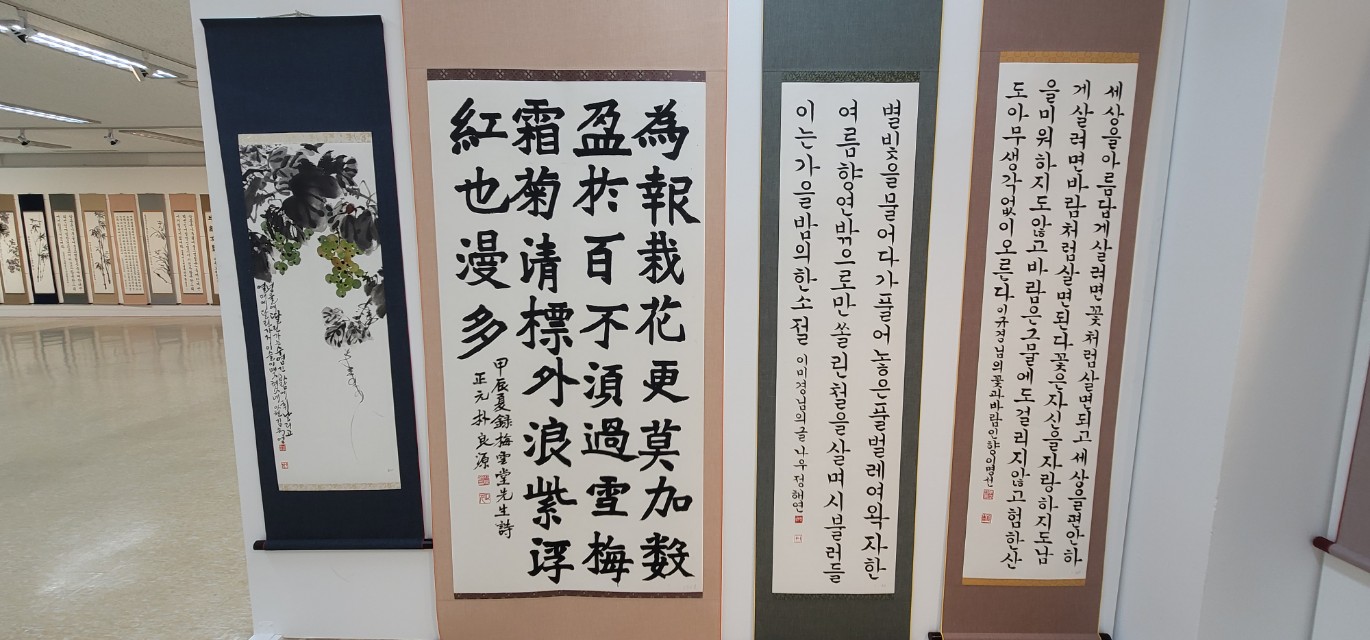 為報栽花更莫加数
盈於百不須過雪梅
霜菊清標外浪紫浮
紅也漫多
甲辰夏録梅雪堂先生詩
正元 朴良源
별빛을물어다가풀어놓은풀벌레여왁자한
여름향연밖으로만쏠린철을살며시불러들
이는가을밤의한소절 이미경님의글 나우정해연
세상을아름답게살려면꽃처럼살면되고세상을편안하
게살려면바람처럼살면된다꽃은자신을자랑하지도남
을미워하지도않고바람은그물에도걸리지않고험한산
도아무생각없이오른다 이규경님의꽃과바람 인향이명선